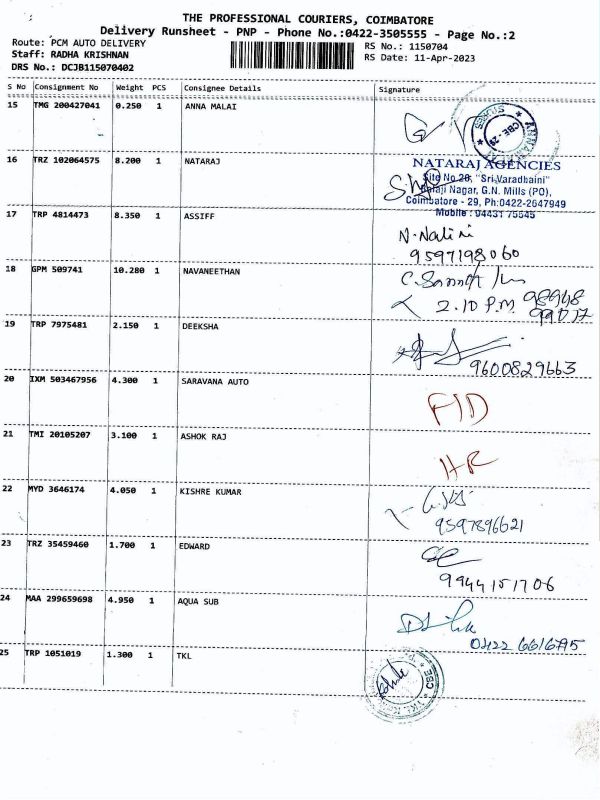 THE PROFESSIONAL COURIERS, COIMBATORE
Delivery Runsheet - PNP - Phone No.:0422-3505555 - Page No.:2
Route: PCM AUTO DELIVERY
RS No.: 1150704
Staff: RADHA KRISHNAN
RS Date: 11-Apr-2023
DRS No.: DCJB115070402
S No Consignment No Weight PCS Consignee Details Signature
15 TMG 200427041 0.250 1 ANNA MALAI
CBE - 29
16 TRZ 102064575 8.200 1 NATARAJ
NATARAJ AGENCIES
Site No 20, "Sri Varadhaini"
Balaji Nagar, G.N. Mills (PO),
Coimbatore - 29, Ph:0422-2647949
Mobile : 94431 75545
17 TRP 4814473 8.350 1 ASSIFF
N. Nalini
9597198060
18 GPM 509741 10.280 1 NAVANEETHAN
2.10 P.M. 98948
99017
19 TRP 7975481 2.150 1 DEEKSHA
9600829663
20 IXM 503467956 4.300 1 SARAVANA AUTO
FID
21 TMI 20105207 3.100 1 ASHOK RAJ
HR
22 MYD 3646174 4.050 1 KISHRE KUMAR
9597896621
23 TRZ 35459460 1.700 1 EDWARD
9944151706
24 MAA 299659698 4.950 1 AQUA SUB
0422 6616795
25 TRP 1051019 1.300 1 TKL
CBE